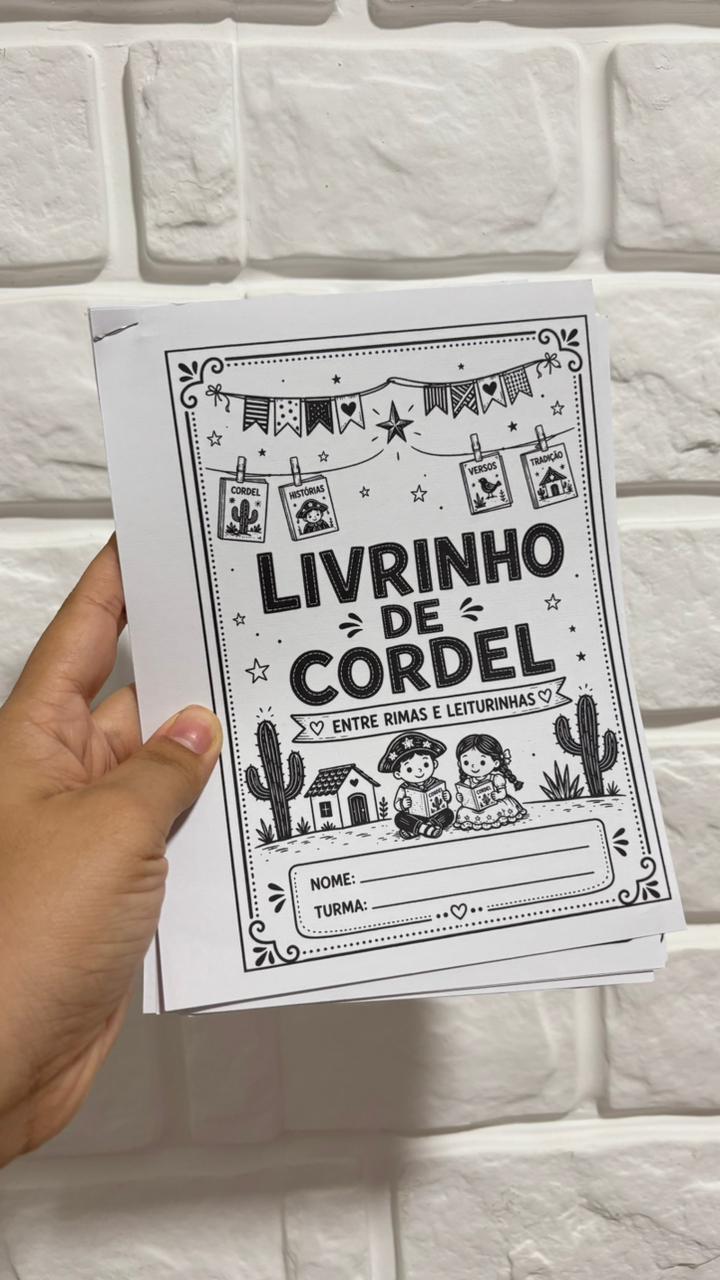 CORDEL
HISTÓRIAS
VERSOS
TRADIÇÃO
LIVRINHO
DE
CORDEL
ENTRE RIMAS E LEITURINHAS
CORDEL
CORDEL
NOME:
TURMA: